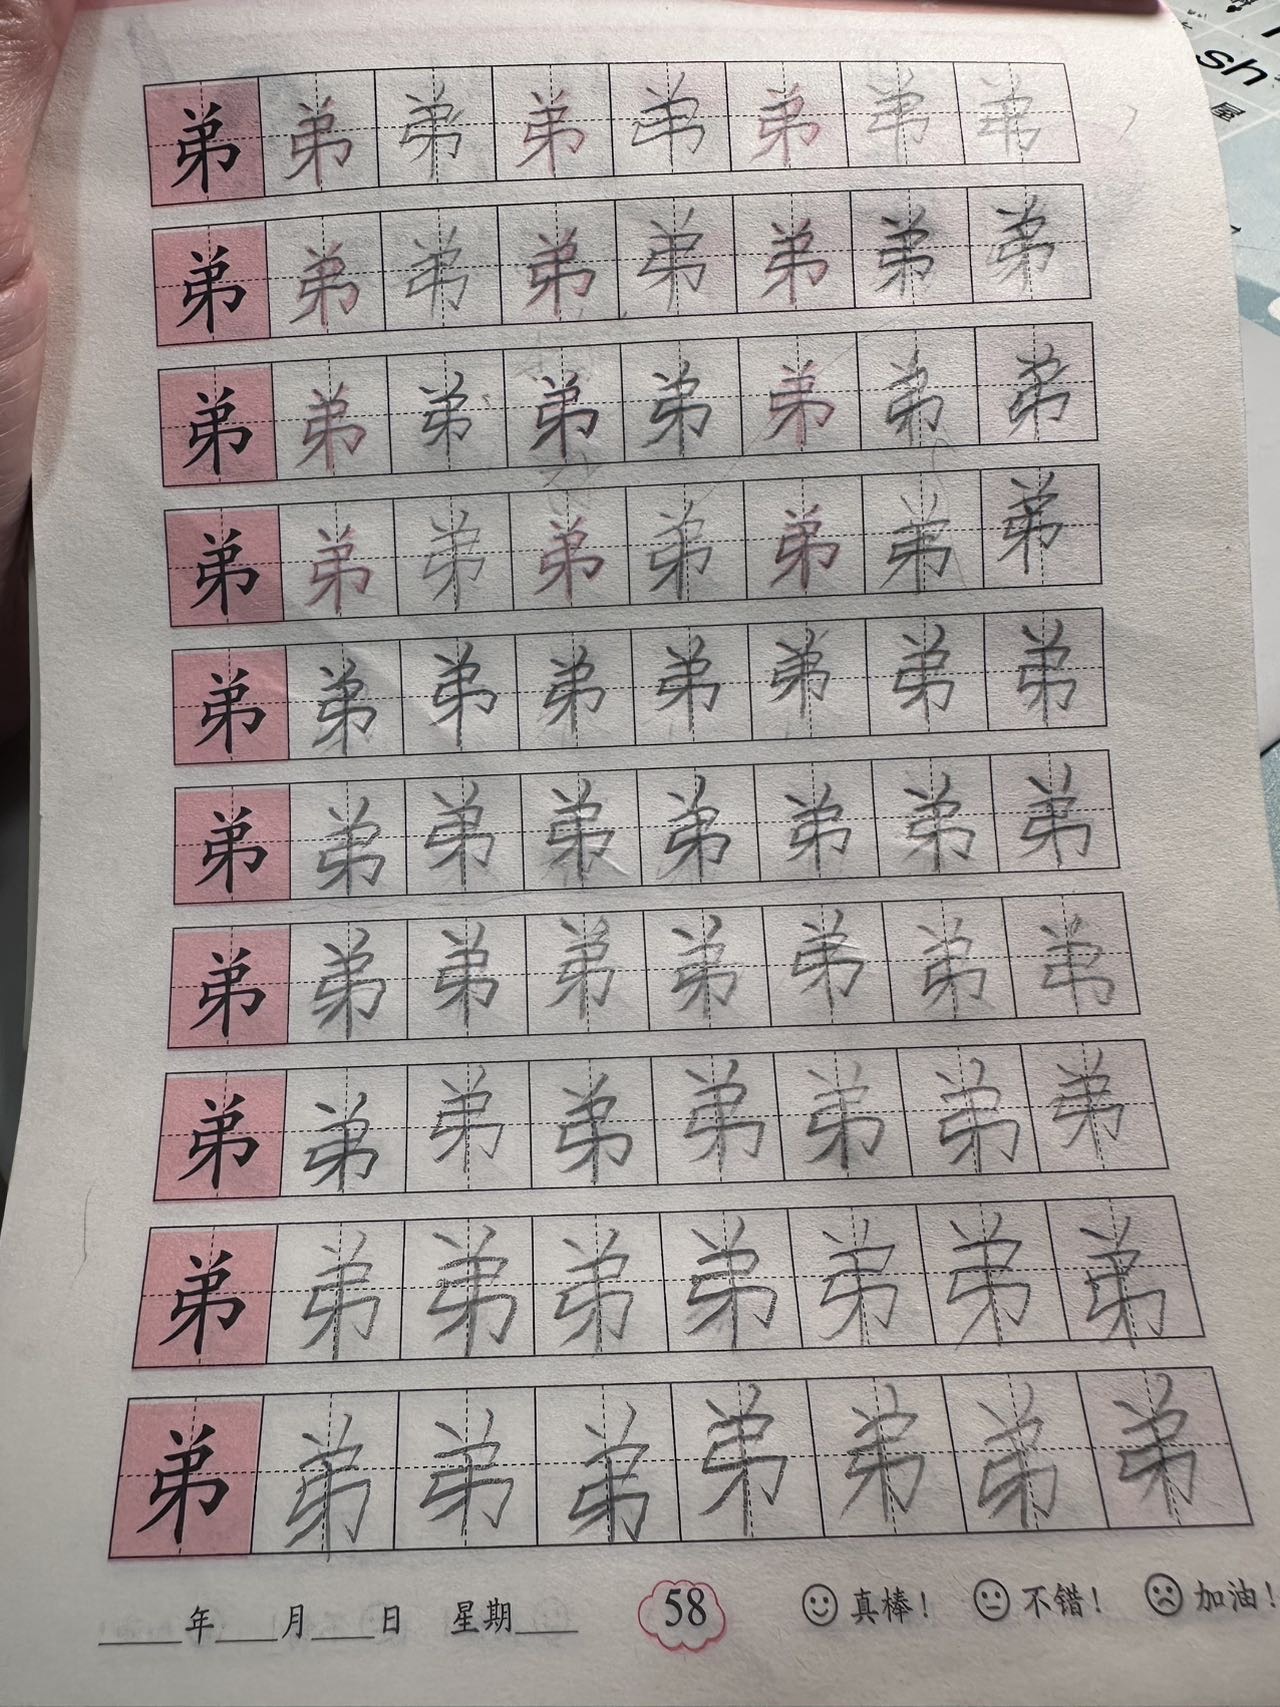 sh
屋
弟 弟 弟 弟 弟 弟 弟 弟
弟 弟 弟 弟 弟 弟 弟 弟
弟 弟 弟 弟 弟 弟 弟 弟
弟 弟 弟 弟 弟 弟 弟 弟
弟 弟 弟 弟 弟 弟 弟 弟
弟 弟 弟 弟 弟 弟 弟 弟
弟 弟 弟 弟 弟 弟 弟 弟
弟 弟 弟 弟 弟 弟 弟 弟
弟 弟 弟 弟 弟 弟 弟 弟
弟 弟 弟 弟 弟 弟 弟 弟
____年____月____日 星期____ 58 真棒! 不错! 加油!